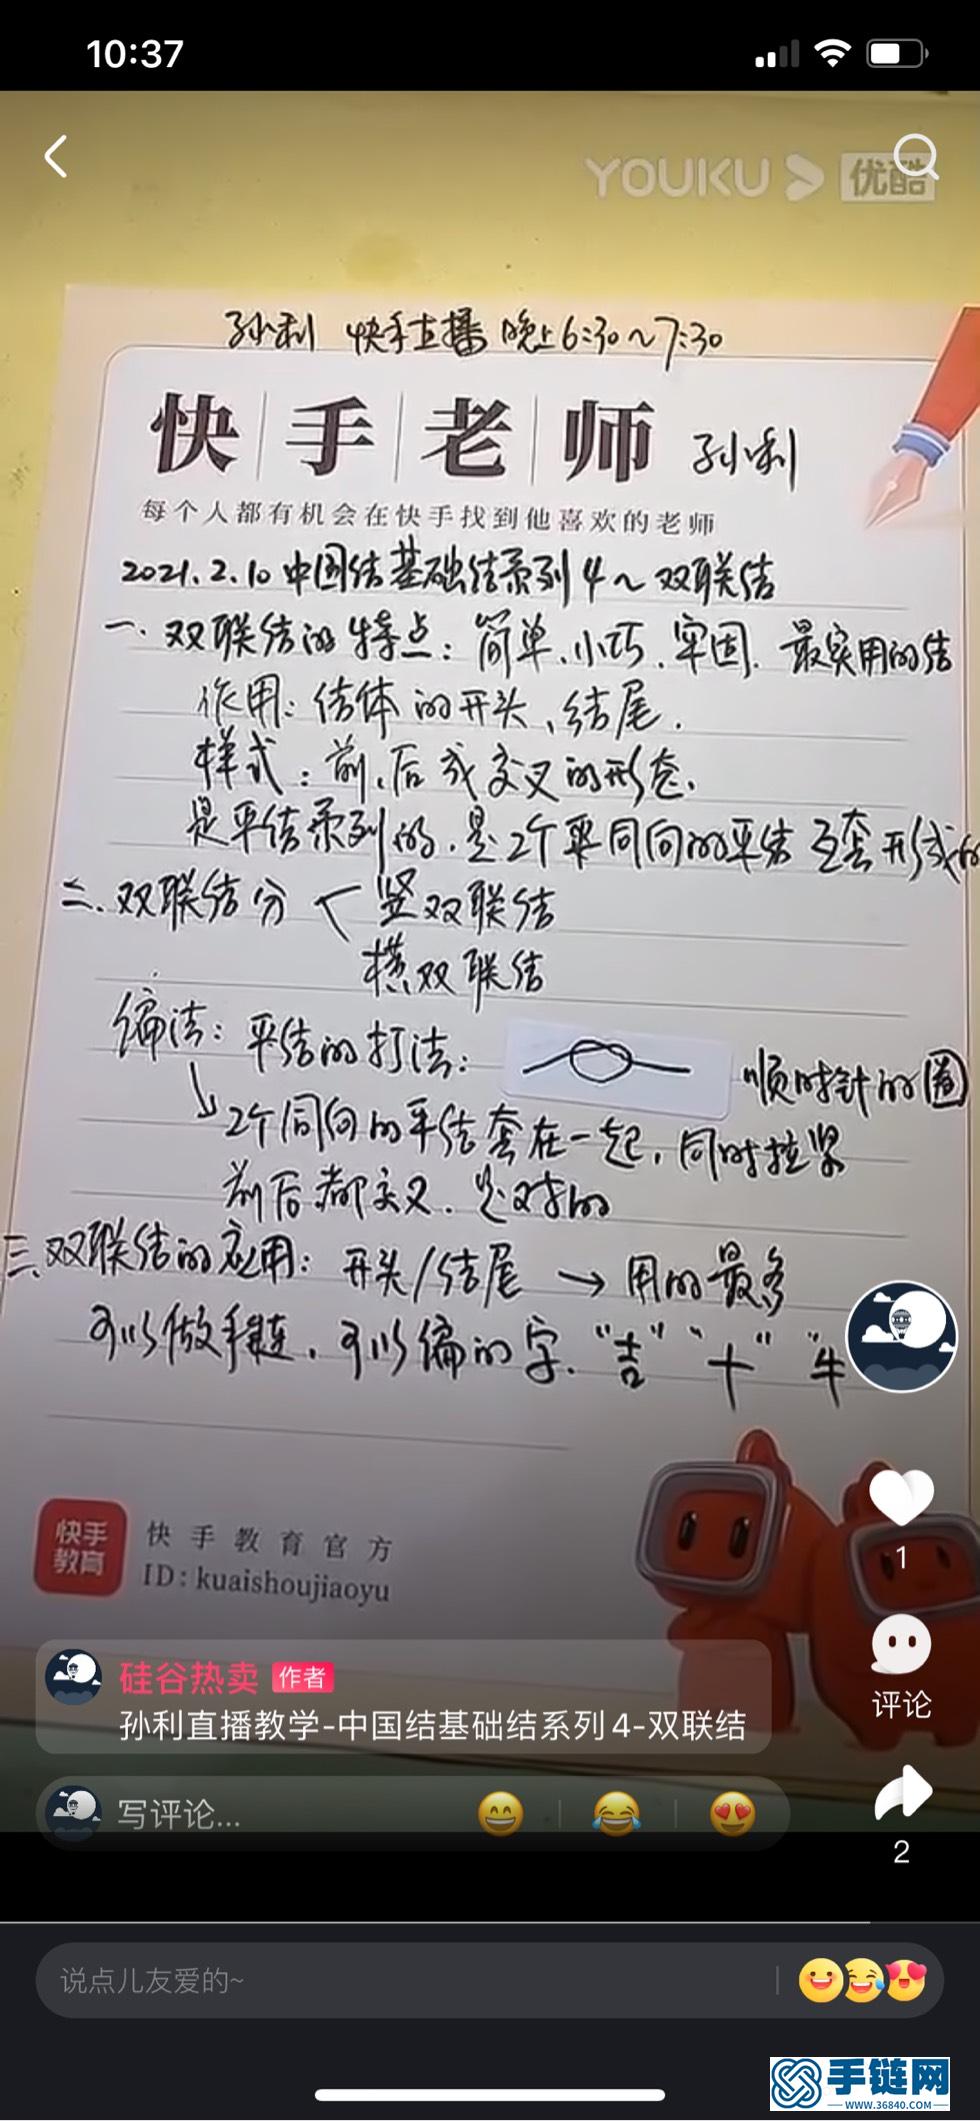 10:37
YOUKU 优酷
孙利 快手直播 晚上6:30~7:30
快手老师 孙利
每个人都有机会在快手找到他喜欢的老师
2021.2.10 中国结基础结系列4~双联结
一、双联结的特点：简单、小巧、牢固、最实用的结
作用：结体的开头、结尾.
样式：前、后成交叉的形态.
是平结系列的.是2个 同向的平结互套形成的
二、双联结分 竖双联结
横双联结
编法：平结的打法： 顺时针的圈
2个同向的平结套在一起,同时拉紧
前后都交叉.是对的
三、双联结的应用：开头/结尾→用的最多
可以做手链.可以编的字."吉" "十" "牛
快手教育
快手教育官方
ID:kuaishoujiaoyu
1
硅谷热卖 作者
孙利直播教学-中国结基础结系列4-双联结
评论
写评论...
2
说点儿友爱的~
手链网
WWW.36840.COM